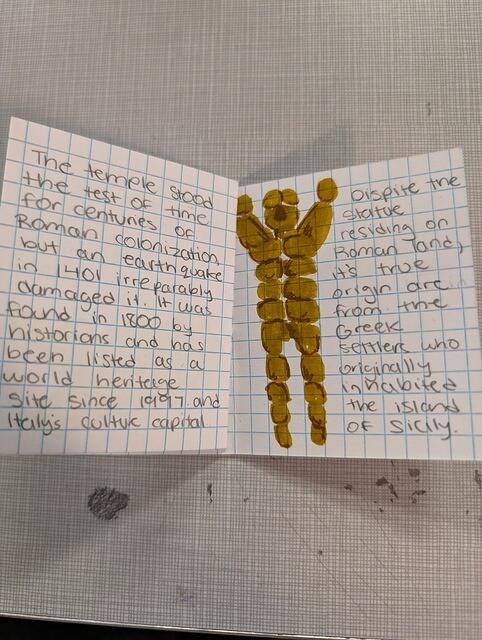 The temple stood
the test of time
for centuries of
Roman colonization
but an earthquake
in 1401 irreparably
damaged it. It was
found in 1800 by
historians and has
been listed as a
world heritege
site since 1997 and
Italy's cultuk capital
Dispite the
statue
residing on
Roman land,
it's true
origin are
from the
Greek
settlers who
originally
inhabited
the island
of Sicily.